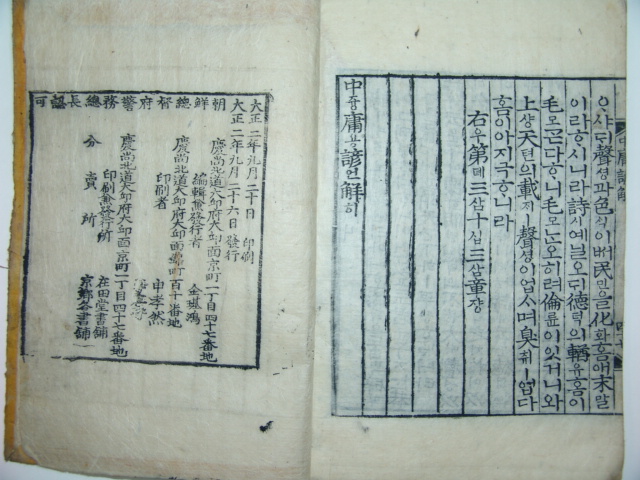 ᄋᆞ샤ᄃᆡ聲셩과色ᄉᆡᆨ이ᄡᅥ民민을化화홈애末말
이라ᄒᆞ시니라詩시예닐오ᄃᆡ德덕의輶유홈이
毛모ᄀᆞᆮ다ᄒᆞ니毛모ᄂᆞᆫ오히려倫륜이잇거니와
上샹天텬의載ᄌᆡㅣ聲셩이업스며臭취ㅣ업다
홈이아지극ᄒᆞ니라
右우第뎨三삼十십三삼章쟝
中듕庸용諺언解ᄒᆡ
朝鮮總督府警務總長認可
大正二年九月二十日 印刷
大正二年九月二十六日 發行
慶尚北道大邱府大邱面京町一丁目四十七番地
編輯兼發行者 金璂鴻
慶尚北道大邱府大邱面 町百十番地
印刷者 申孝然
慶尚北道大邱府大邱面京町一丁目四十七番地
印刷兼發行所 在田堂書鋪
分賣所 京鄉各書鋪